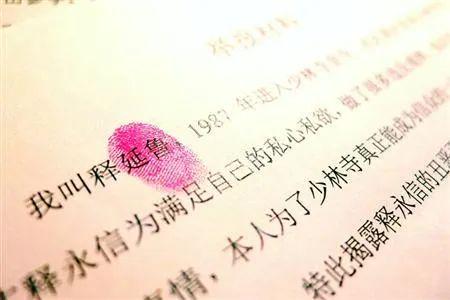 举报材料
我叫释延鲁，1987年进入少林寺
释永信为满足自己的私心私欲，做了很多
事情，本人为了少林寺真正能成为
特此揭露释永信的丑